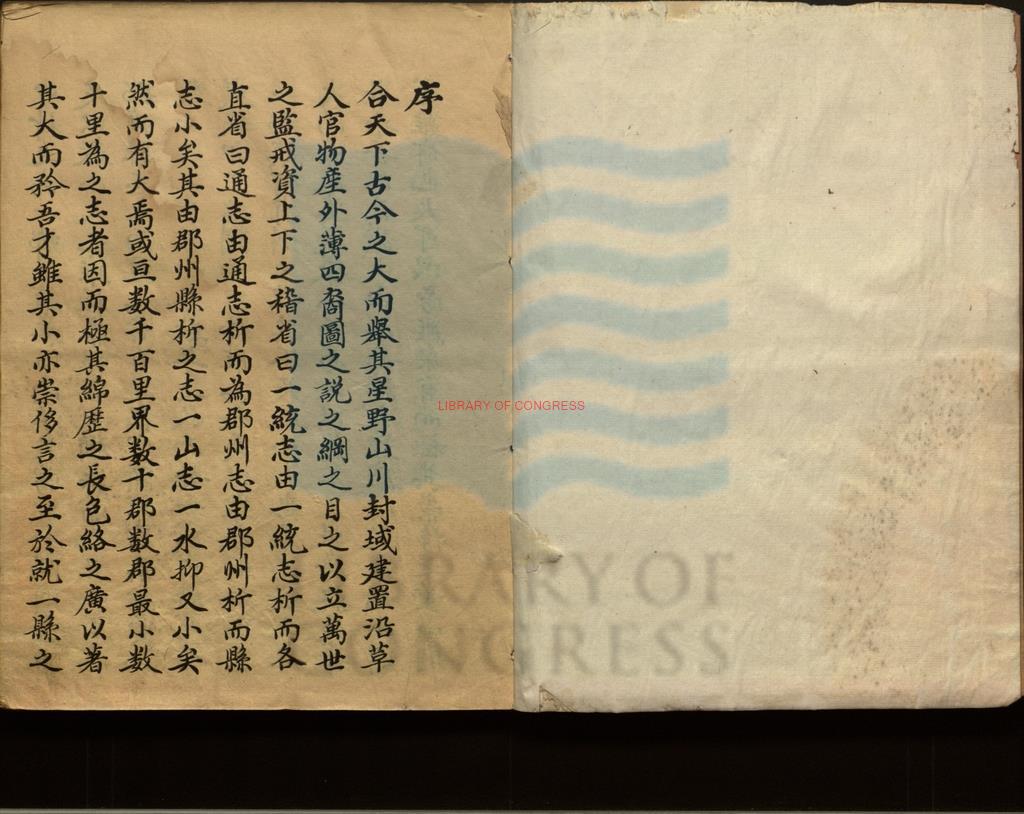 序
合天下古今之大而舉其星野山川封域建置沿草
人官物產外薄四裔圖之説之綱之目之以立萬世
之監戒資上下之稽省曰一統志由一統志析而各
直省曰通志由通志析而為郡州志由郡州析而縣
志小矣其由郡州縣析之志一山志一水抑又小矣
然而有大焉或亘数千百里界数十郡数郡最小数
十里為之志者因而極其綿歷之長包絡之廣以著
其大而矜吾才雖其小亦崇侈言之至於就一縣之
LIBRARY OF CONGRESS
LIBRARY OF
CONGRESS